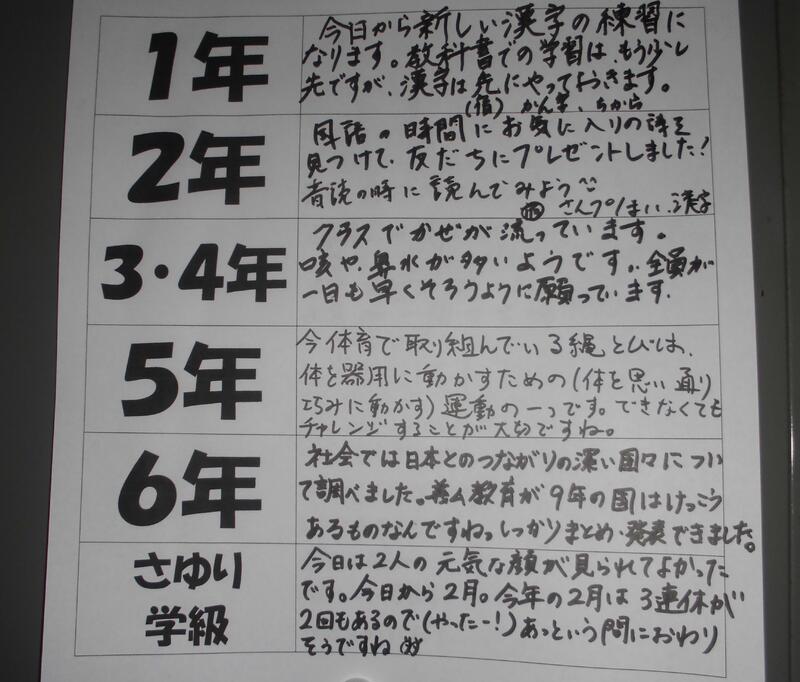 1年
今日から新しい漢字の練習に
なります。教科書での学習は、もう少し
先ですが、漢字は先にやっておきます。
(宿) かん字、ちから
2年
国語の時間にお気に入りの詩を
見つけて、友だちにプレゼントしました!
音読の時に読んでみよう
宿 さんプリまい、漢字
3・4年
クラスでかぜが流っています。
咳や、鼻水が多いようです。全員が
一日も早くそろうように願っています。
5年
今体育で取り組んでいる縄とびは、
体を器用に動かすための(体を思い通り
巧みに動かす)運動の一つです。できなくても
チャレンジすることが大切ですね。
6年
社会では日本とのつながりの深い国々につい
て調べました。義ム教育が9年の国はけっこう
あるものなんですね。しっかりまとめ・発表できました。
さゆり
学級
今日は2人の元気な顔が見られてよかった
です。今日から2月。今年の2月は3連休が
2回もあるので(やったー!)あっという間におわり
そうですね